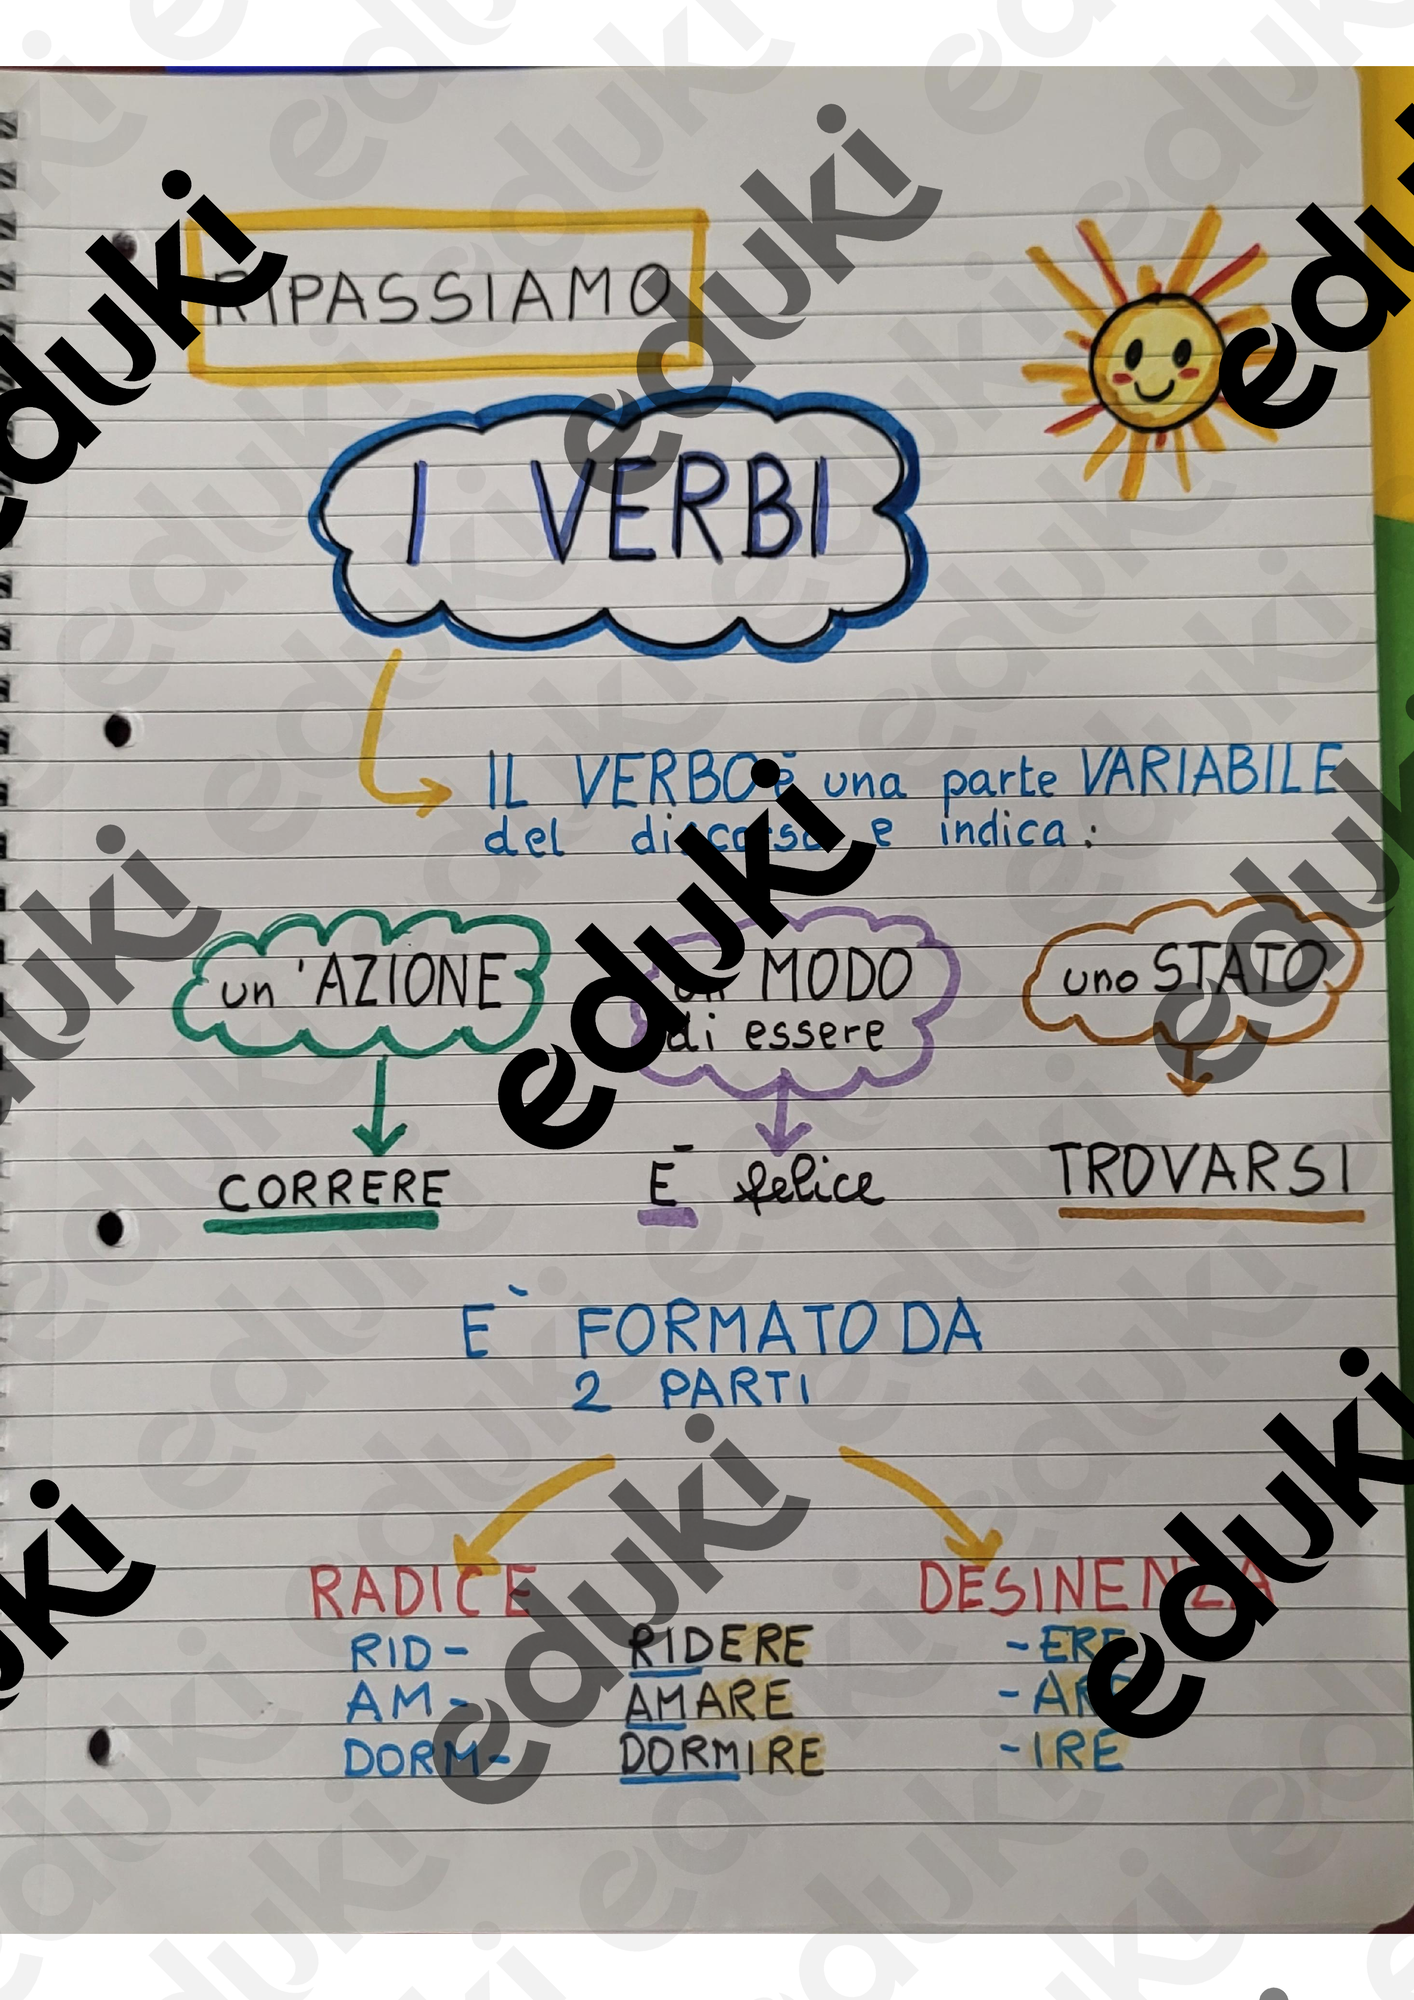 RIPASSIAMO
I VERBI
IL VERBO è una parte VARIABILE
del discorso e indica:
un'AZIONE
un MODO
di essere
uno STATO
CORRERE
È felice
TROVARSI
E` FORMATO DA
2 PARTI
RADICE
DESINENZA
RID- RIDERE -ERE
AM- AMARE -ARE
DORM- DORMIRE -IRE
eduki